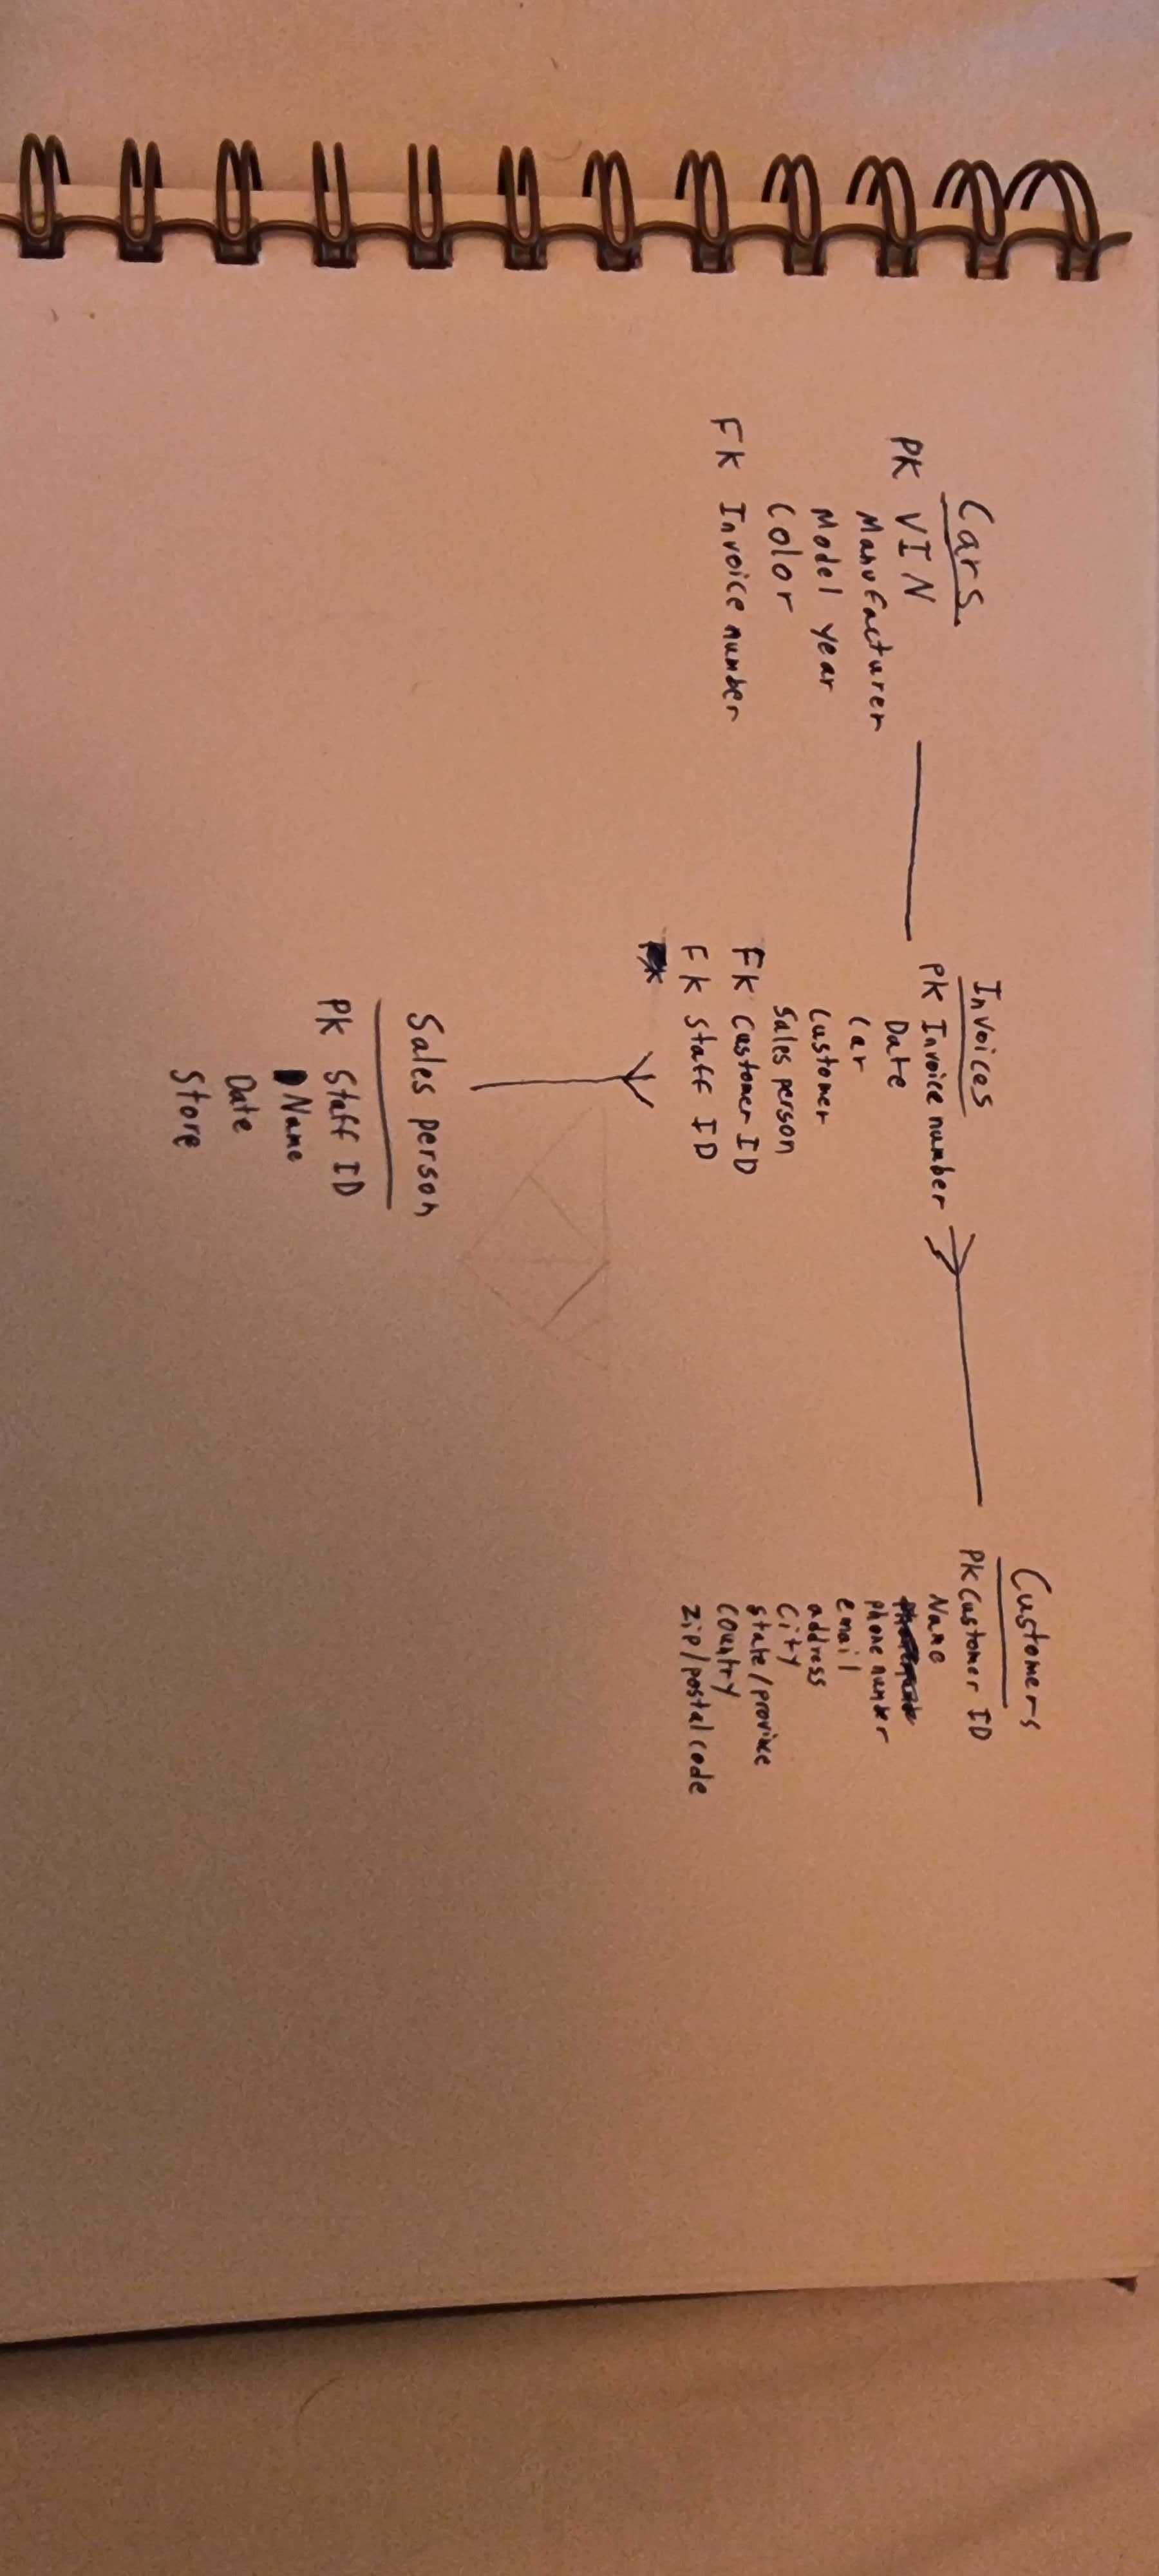 Cars
PK VIN
Manufacturer
Model year
Color
FK Invoice number
Invoices
PK Invoice number
Date
Car
Customer
Sales person
FK Customer ID
FK Staff ID
Customers
PK Customer ID
Name
phone number
email
address
City
state/province
country
zip/postal code
Sales person
PK Staff ID
Name
Date
Store